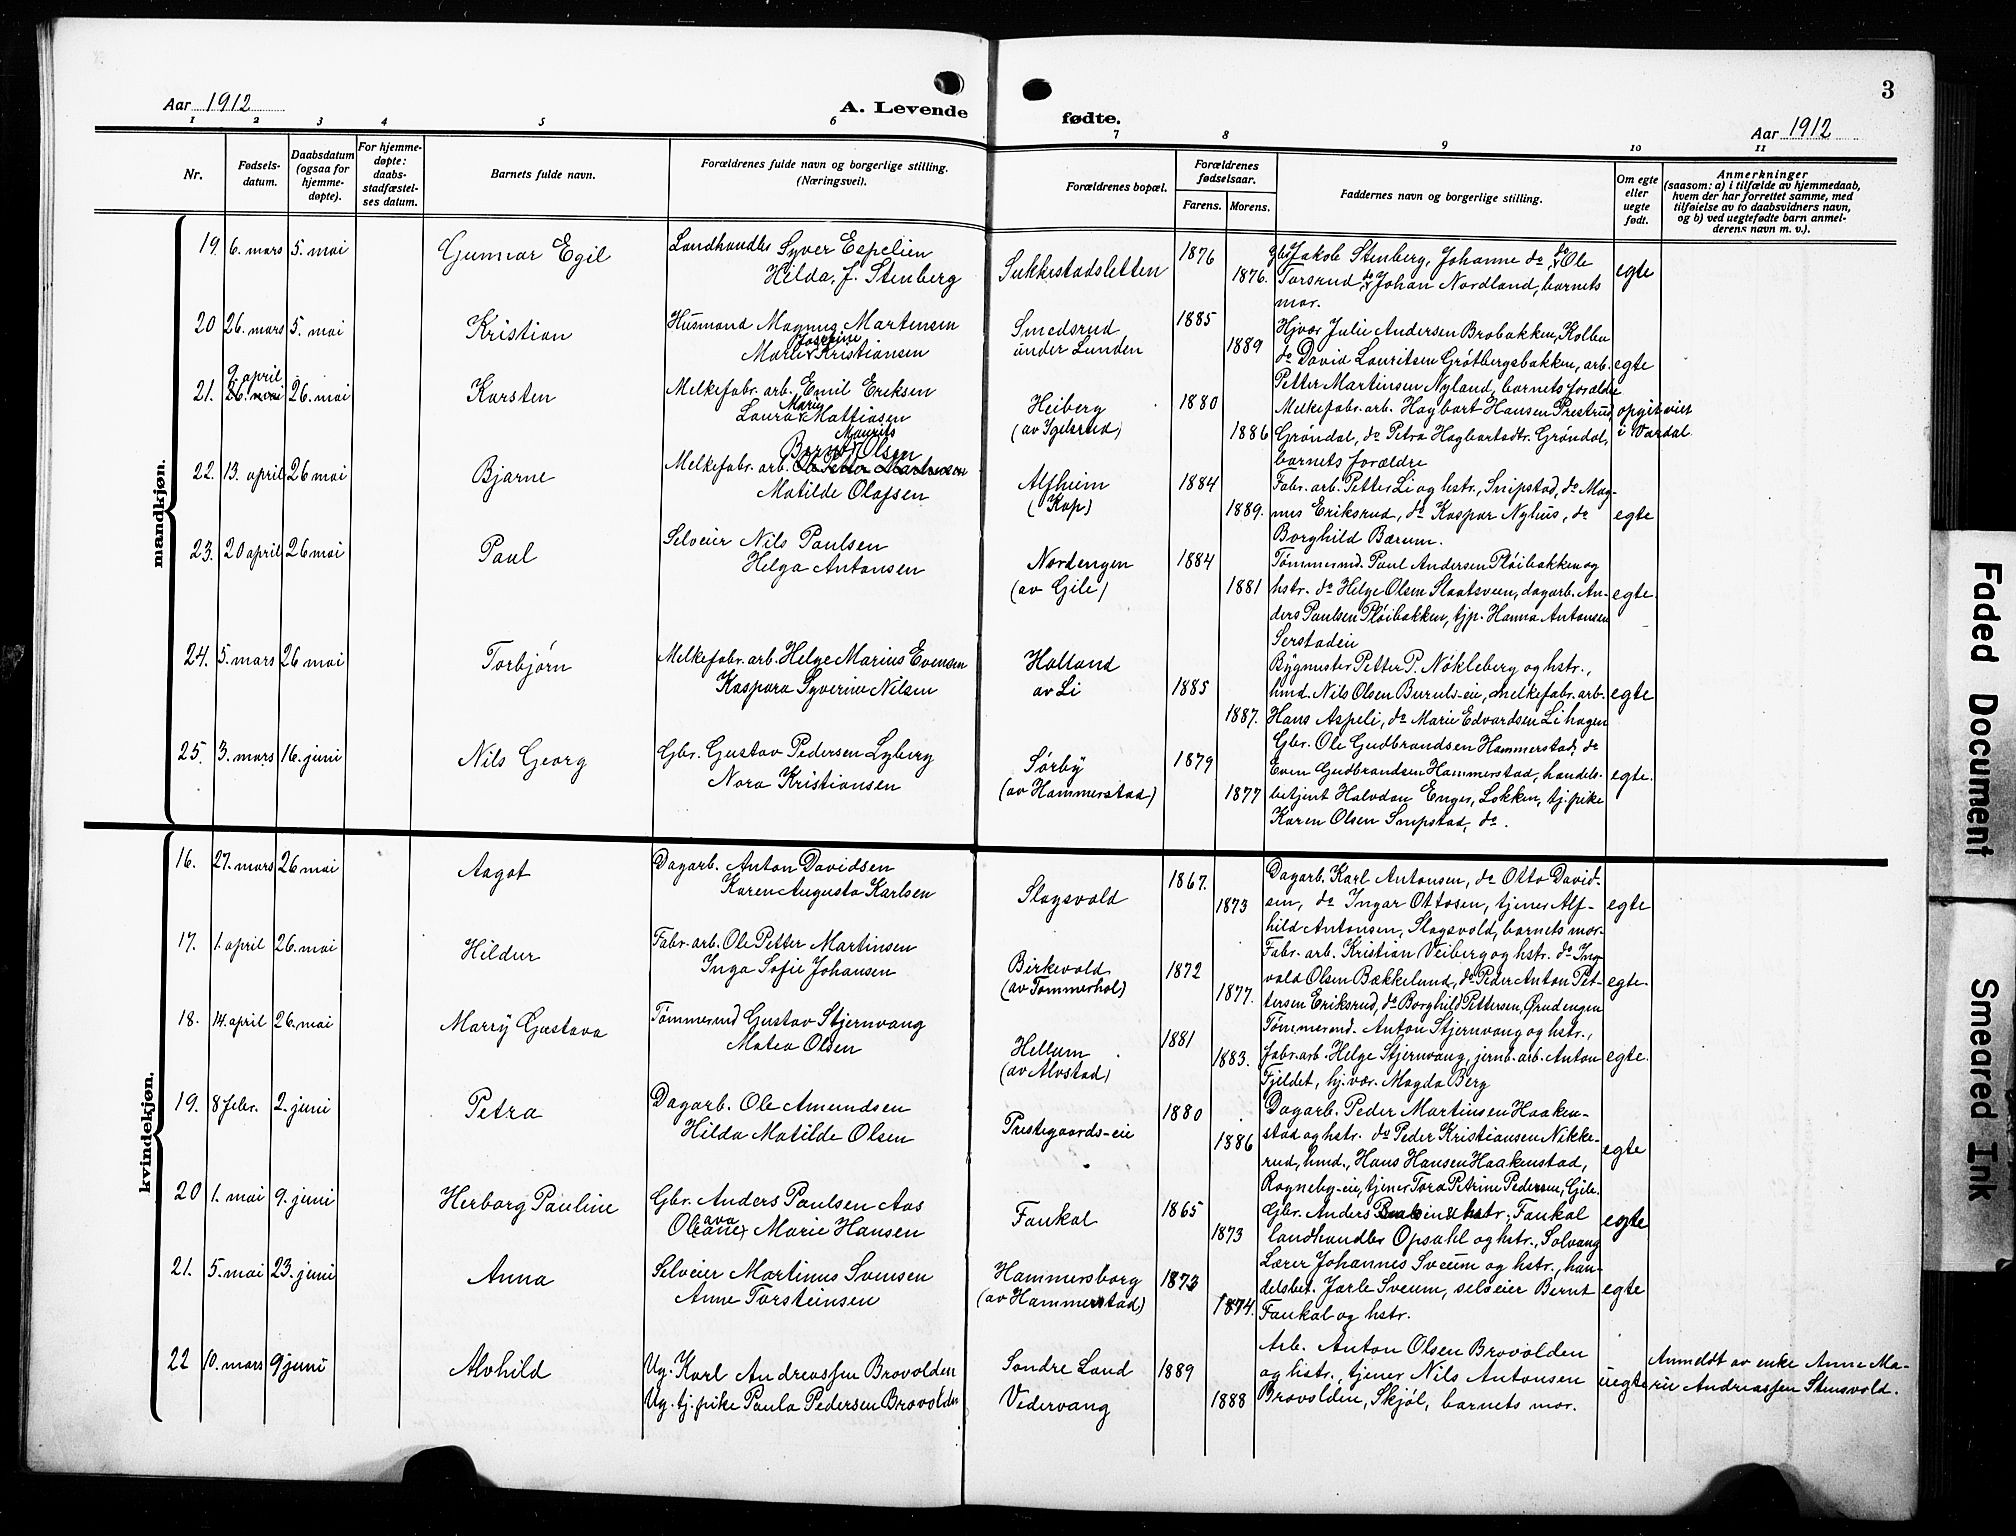 Aar 1912
A. Levende
fødte.
3
Aar 1912
1 2 3 4 5 6 7 8 9 10 11
Nr.
Fødsels-
datum.
Daabsdatum
(ogsaa for
hjemme-
døpte).
For hjemme-
døpte:
daabs-
stadfæstel-
ses datum.
Barnets fulde navn.
Forældrenes fulde navn og borgerlige stilling.
(Næringsvei).
Forældrenes bopæl.
Forældrenes
fødselsaar.
Farens. Morens.
Faddernes navn og borgerlige stilling.
Om egte
eller
uegte
født.
Anmerkninger
(saasom: a) i tilfælde av hjemmedaab,
hvem der har forrettet samme, med
tilføielse av to daabsvidners navn,
og b) ved uegtefødte barn anmel-
derens navn m. v.).
mandkjøn.
19. 6. mars 5. mai Gunnar Egil
Landhandler Syver Espelien
Hilda, f. Stenberg
Sukkestadsletten
1876
1876.
Gbr. Jakob Stenberg, Johanne do, do Ole
Torsrud, do Johan Nordland, barnets
mor.
egte
20 26. mars 5. mai Kristian
Husmand Magnus Martensen
Josefine
Marie Kristiansen
Smedsrud
under Lunden
1885
1889
Hjvær Julie Andersen Brobakken, Kolbu
do David Lauritsen Grøtbergsbakken, arb.
Petter Martinsen Nyland, barnets forældre
egte
21. 9 april 26. mai 26. mai Karsten
Melkefabr. arb. Emil Eriksen
Marie
Laura Mattiasen
Heiberg
(av Igelsrud)
1880
1886
Melkefabr. arb. Hagbart Hansen Prestrud,
Grøndal, do Petra Hagbartsdtr. Grøndal,
barnets forældre
opgit viet
i Vardal.
22. 13. april 26 mai Bjarne
Maurits
Bernt Olsen
Melkefabr. arb. Ole Petter Martinsen
Matilde Olafsen
Alfheim
(Kap)
1884
1889.
Fabr. arb. Petter Li og hstr., Snipstad, do Mag-
nus Eriksrud, do Kaspar Nyhus, do
Borghild Bærum.
egte
23. 20 april 26 mai Paul
Selveier Nils Paulsen
Helga Antonsen
Nordengen
(av Gile)
1884
1881
Tømmermd. Paul Andersen Pløibakken og
hstr. do Helge Olsen Slaatsveen, dagarb. An-
ders Paulsen Pløibakken, tjp. Hanna Antonsen
Serstadeie
egte.
24. 5. mars 26 mai Torbjørn
Melkefabr. arb. Helge Marius Evensen
Kaspara Syverine Nilsen
Holland
av Li
1885
1887.
Bygmester Petter P. Nøkleberg og hstr.,
hmd. Nils Olsen Buruls-eie, melkefabr. arb.
Hans Aspeli, do Marie Edvardsen Lihagen
egte
25. 3. mars 16. juni Nils Georg
Gbr. Gustav Pedersen Lyberg
Nora Kristiansen
Sørby
(av Hammerstad)
1879
1877
Gbr. Ole Gudbrandsen Hammerstad, do
Even Gudbrandsen Hammerstad, handels-
betjent Halvdan Enger, Løkken, tj.pike
Karen Olsen Snipstad, do.
egte.
kvindekjøn.
16. 27. mars 26 mai Aagot
Dagarb. Anton Davidsen
Karen Augusta Karlsen
Slagsvold
1867.
1873
Dagarb. Karl Antonsen, do Otto David-
sen, do Ingar Ottosen, tjener Alf-
hild Antonsen, Slagsvold, barnets mor
egte
17. 1. april 26. mai Hildur
Fabr. arb. Ole Petter Martinsen
Inga Sofie Johansen
Birkevold
(av Tømmerhol)
1872
1877.
Fabr. arb. Kristian Veiberg og hstr. do Ing-
vold Olsen Bækkelund, do Peder Anton Pet-
tersen Eriksrud, do Borghild Pettersen, Grudengen
egte.
18. 14. april 26. mai Marry Gustava
Tømmermd Gustav Stjernvang
Matea Olsen
Hellum
(av Alvstad)
1881
1883.
Tømmermd. Anton Stjernvang og hstr.,
fabr. arb. Helge Stjernvang, jernb. arb. Anton
Fjeldet, hj. vær. Magda Berg
egte.
19. 8 febr. 2. juni Petra
Dagarb. Ole Amundsen
Hilda Matilde Olsen
Prestegaards-eie
1880
1886
Dagarb. Peder Martinsen Haaken-
stad og hstr. do Peder Kristiansen Nikke-
rud, hmd., Hans Hansen Haakenstad,
Rogneby-eie, tjener Tora Petrine Pedersen, Gile.
egte
20 1. mai 9. juni Herborg Pauline
Gbr. Anders Paulsen Aas
Oleane Marie Hansen
Faukal
1865
1873
Gbr. Anders hstr. Faukal
landhandler Opsahl og hstr., Solvang
egte
21. 5. mai 23. juni Anna
Selveier Martinus Svensen
Anne Torsteinsen
Hammersborg
(av Hammerstad)
1873
1874.
Lærer Johannes Sveum og hstr., han-
delsbet. Jarle Sveum, selveier Bernt
Faukal og hstr.
egte
22 10. mars 9 juni Alvhild
Ug. Karl Andreassen Brovolden
Ug. tj. pike Paula Pedersen Brovolden
Søndre Land
Vedervang
1889
1888
Arb. Anton Olsen Brovolden
og hstr., tjener Nils Antonsen
Brovolden, Skjøl, barnets mor.
uegte
Anmeldt av enke Anne Ma-
rie Andreassen Stensvold.
Faded Document
Smeared Ink